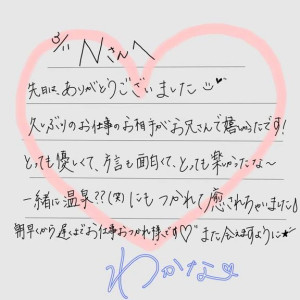 3/11 Nさんへ
先日は、ありがとうございました
久しぶりのお仕事のお相手がお兄さんで嬉しかったです!
とっても優しくて、方言も面白くて、とっても楽しかったな〜
一緒に温泉??(笑)にもつかれて癒されちゃいました♪
朝早くから遅くまでお仕事おつかれ様です♡また会えますように★
わかな